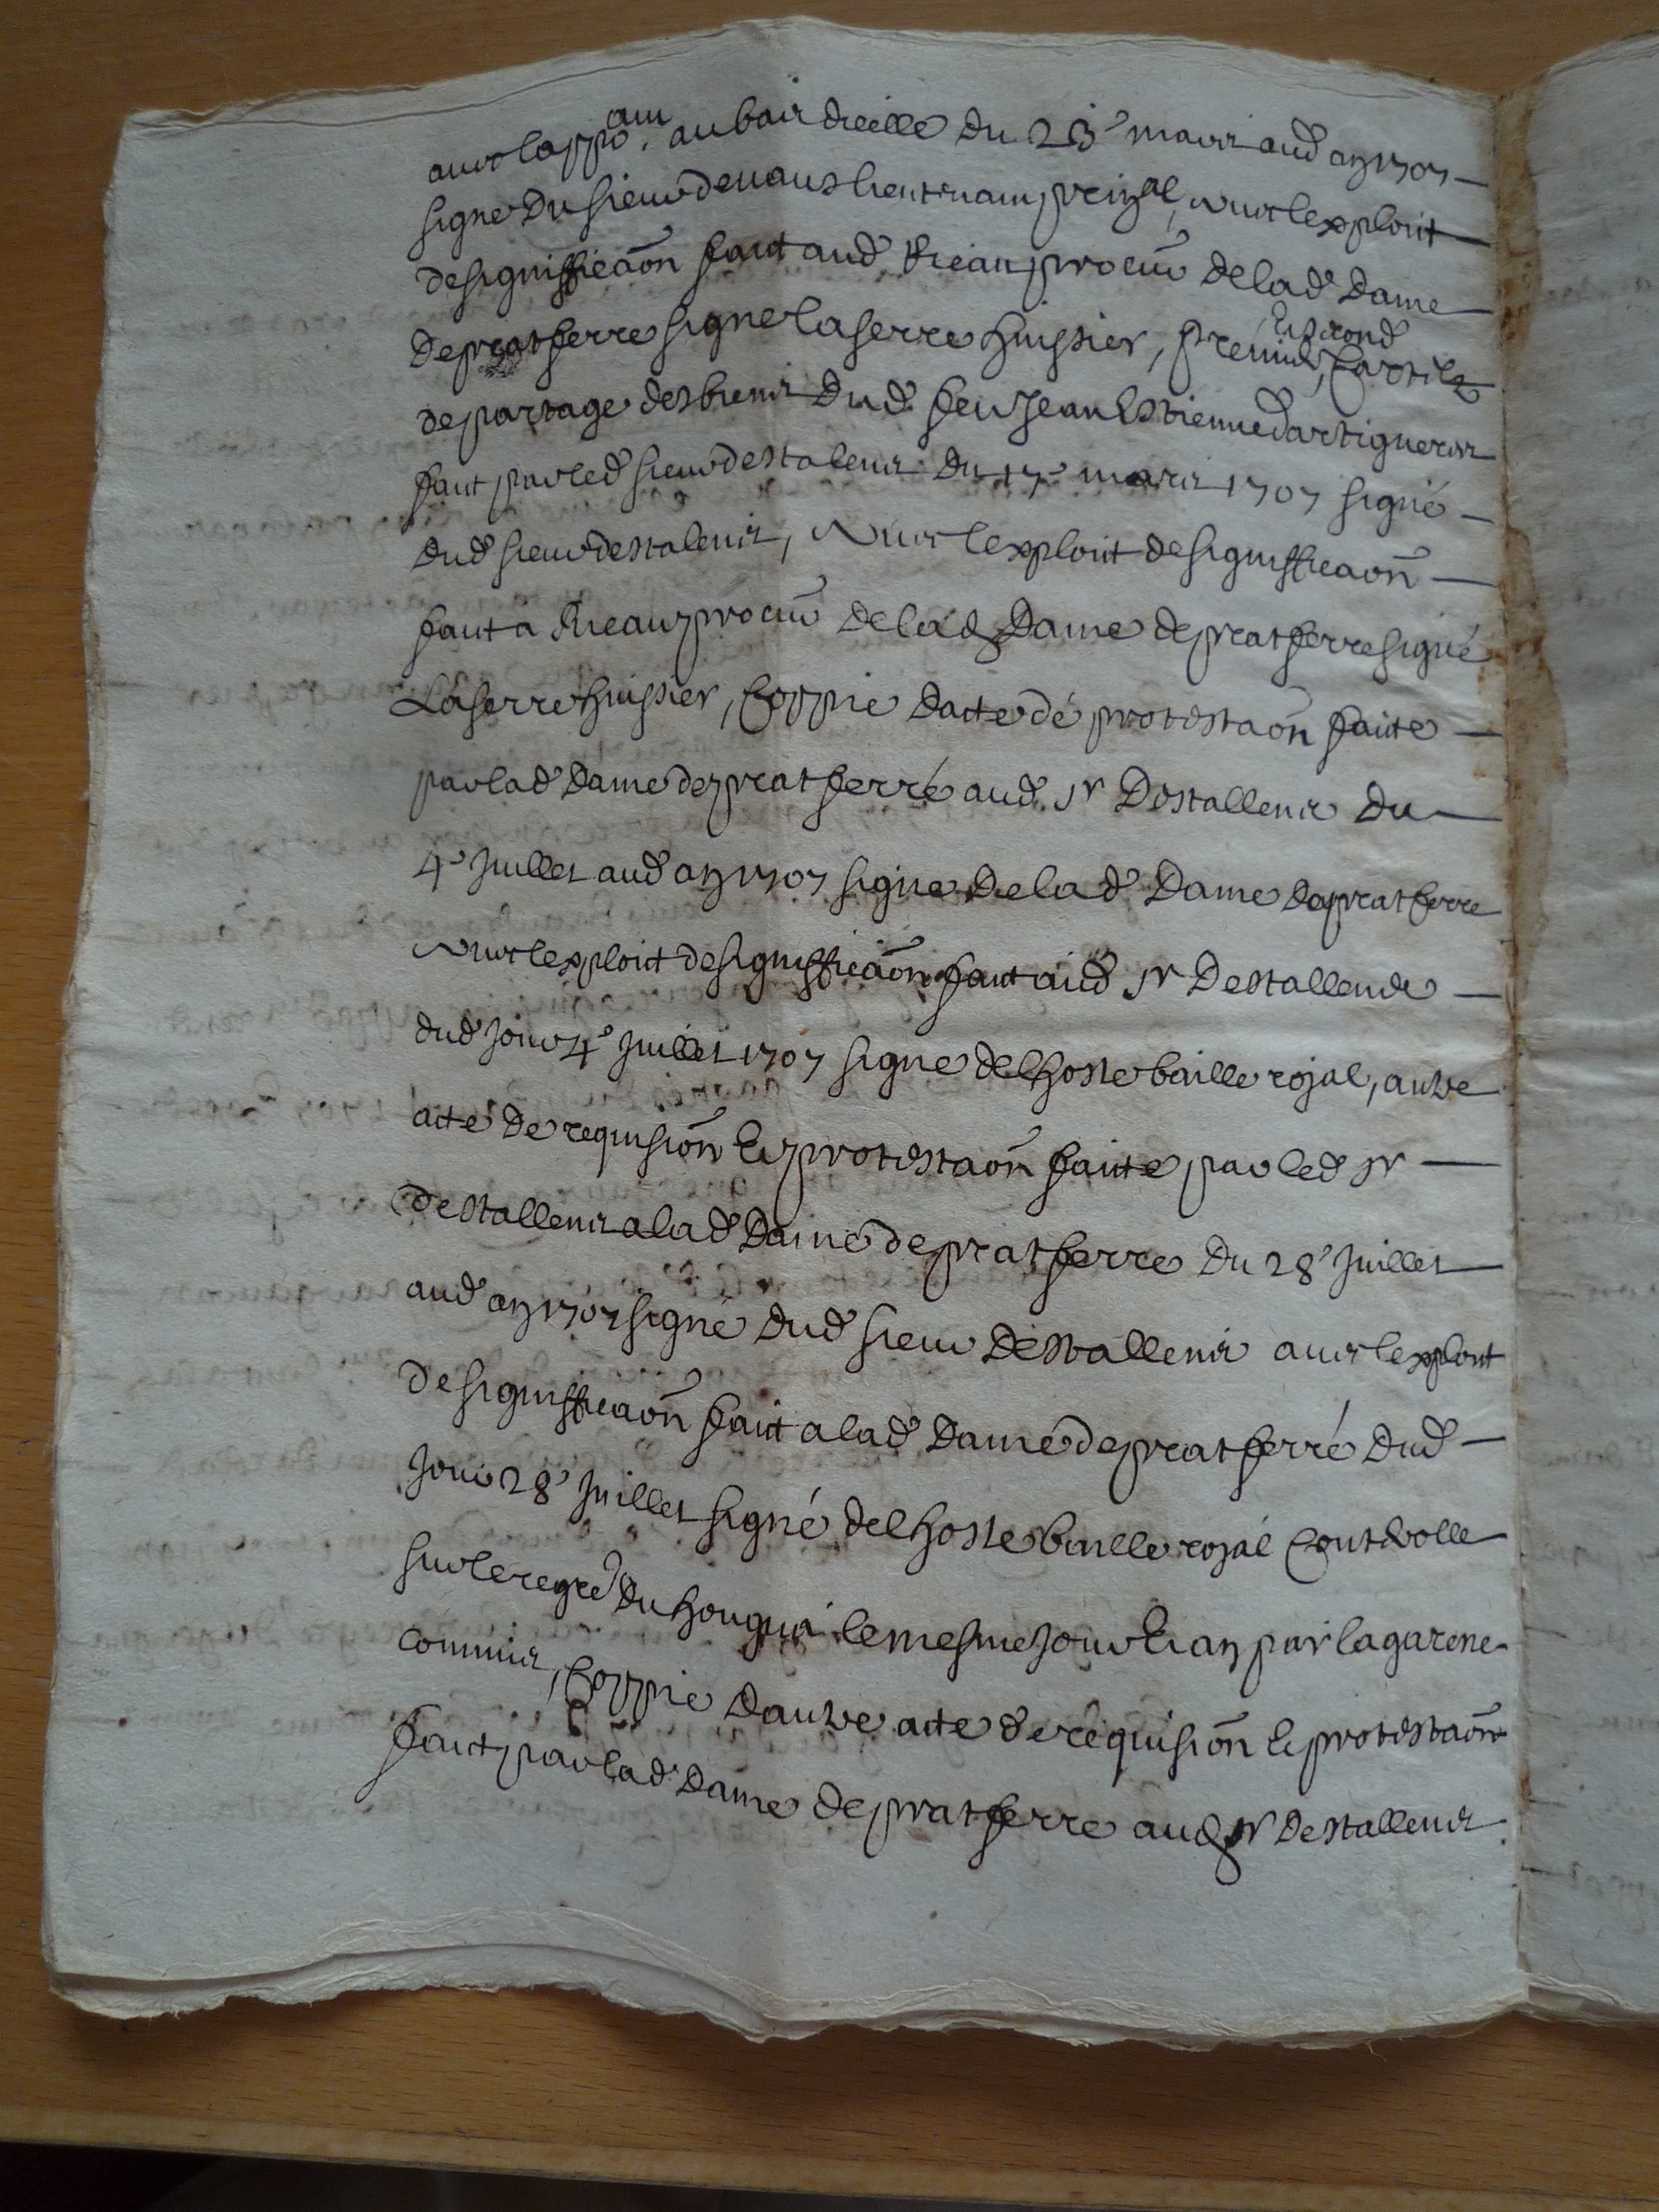 avec lappo.^ant au bas dicelle du 23e mars aud an 1707
signe du sieur devaus lieutenant prinpal, avec lexploit
de signifficaon fait aud Rieau procur de lad dame
de prat ferre signe laserre huissier, premier, et second cartels
de partage des biens dud feu Jean Estienne dartigueres
fait par led sieur destalens du 17e mars 1707 signé
dud sieur destalens, avec lexploit de signifficaon
fait a Rieau procur de lad dame de prat ferre signé
Laserre huissier, coppie dacte de protestaon faite
par lad dame de prat ferré aud sr Destallens du
4e Juillet aud an 1707 signe de lad dame de prat ferre
avec lexploit de signifficaon fait aud sr Destallens
dud jour 4e Juillet 1707 signe delhoste baille royal, autre
acte de requision et protestaon faite par led sr
destallens a lad dame de prat ferre du 28e Juillet
aud an 1707 signé dud sieur destallens avec lexploit
de signifficaon fait a lad dame de prat ferré dud
jour 28e Juillet signé delhoste baille royal controlle
sur le regre du houga le mesme jour et an par lagarene
commis, coppie dautre acte de requision et protestaon
fait par lad dame de prat ferre aud sr destallens